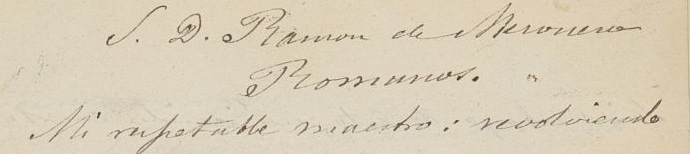 S. D. Ramon de Mesonero
Romanos. "
Mi respetable maestro: revolviendo